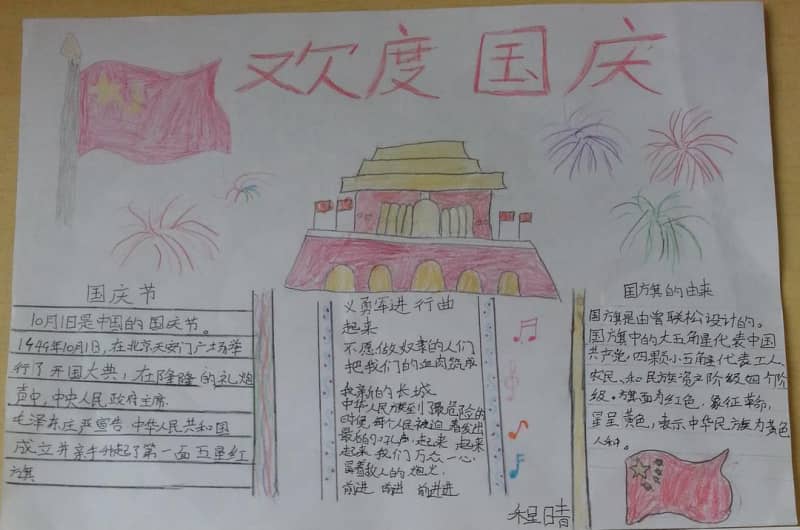 欢度国庆
国庆节
10月1日是中国的国庆节。
1949年10月1日,在北京天安门广场举
行了开国大典,在隆隆的礼炮
声中,中央人民政府主席
毛泽东庄严宣告中华人民共和国
成立并亲手升起了第一面五星红
旗
义勇军进行曲
起来
不愿做奴隶的人们
把我们的血肉筑成
我新的长城
中华人民族到了最危险的
时候,每个人被迫着发出
最后的吼声.起来 起来
起来我们万众一心
冒着敌人的炮火
前进 前进 前进进
国旗的由来
国旗是由曾联松设计的。
国旗中的大五角星代表中国
共产党,四颗小五角星代表工人、
农民、和民族资产阶级四个阶
级。旗面为红色,象征革命,
星呈黄色,表示中华民族为黄色
人种。
程晴